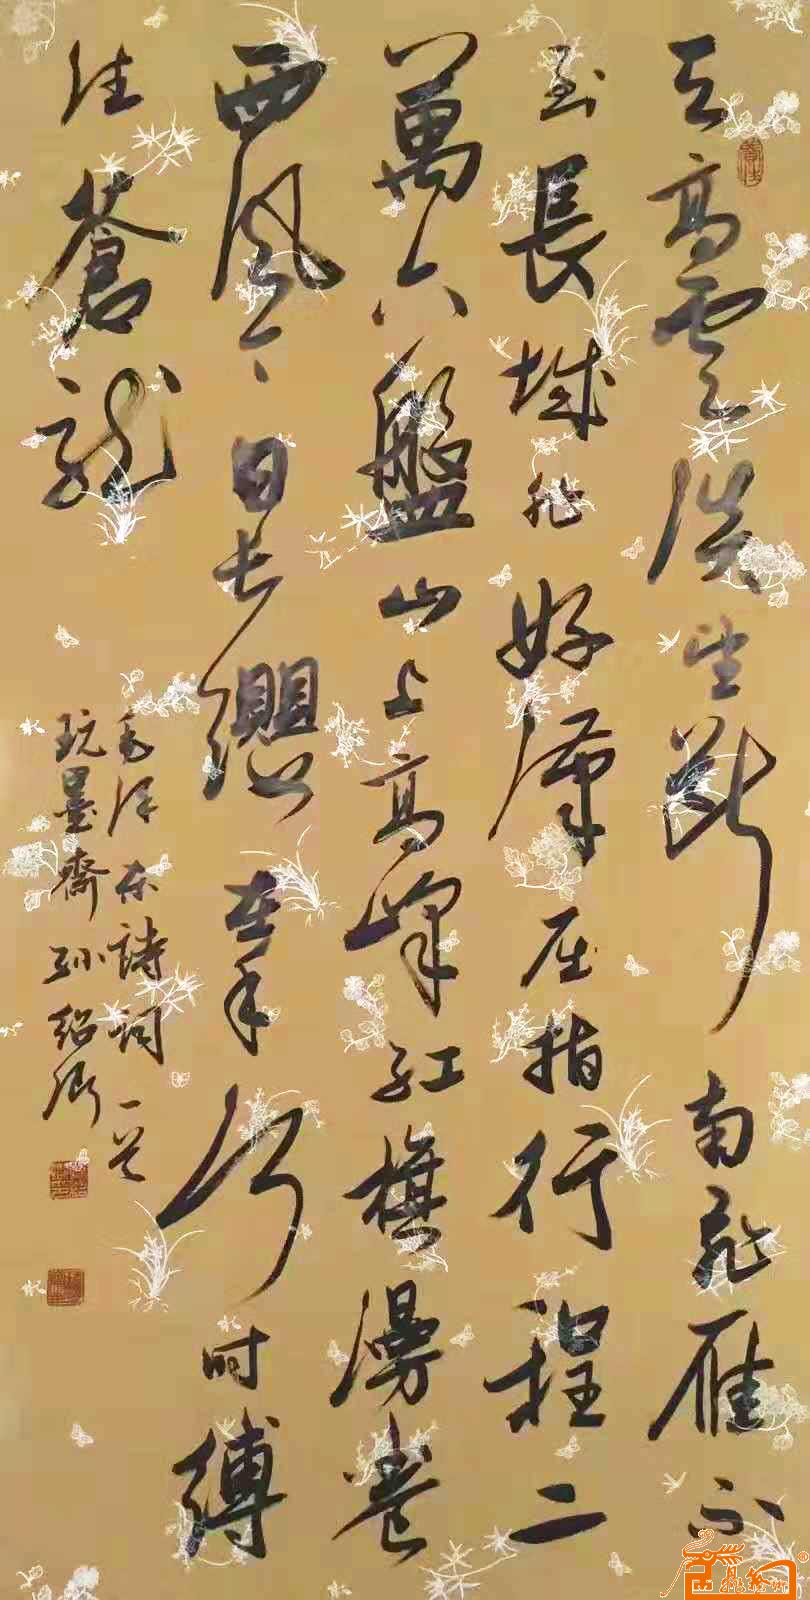 天高雲淡望斷南飛雁不
到長城非好漢屈指行程二
萬六盤山上高峰紅旗漫卷
西風今日長纓在手何时縛
住蒼龍
毛泽东詩词一首
玩墨齋孙绍卿